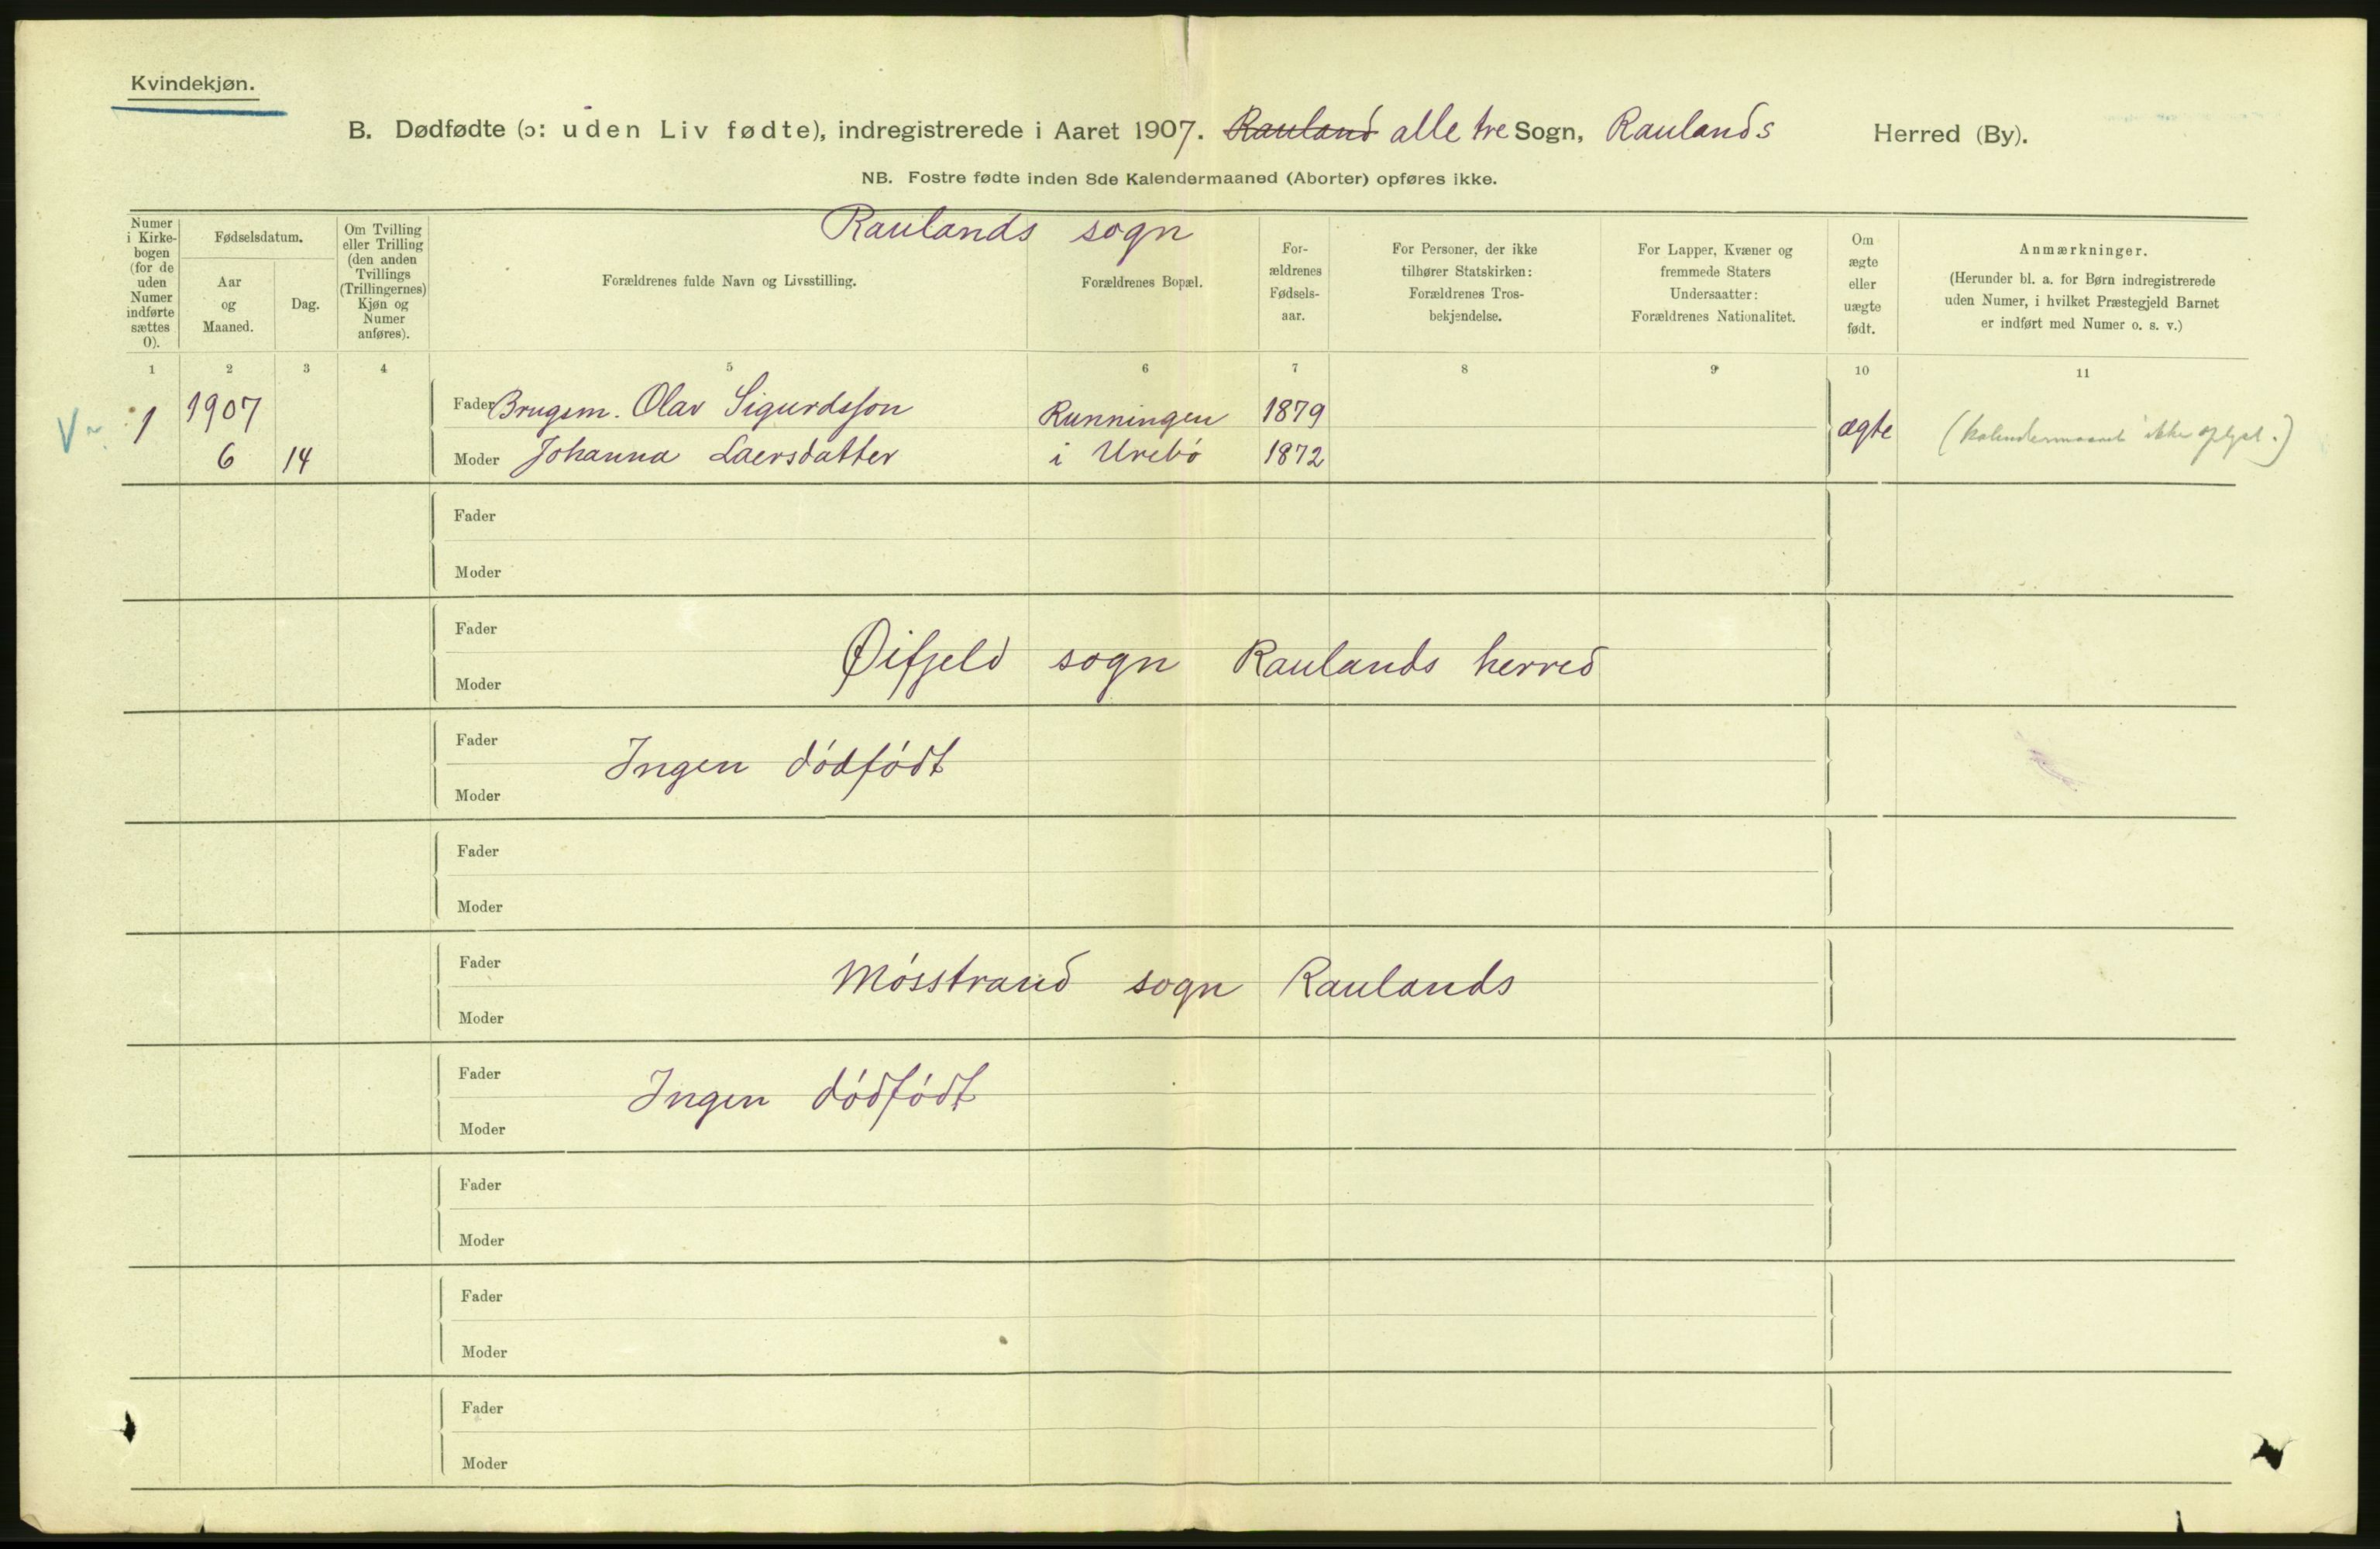 Kvindekjøn.
B. Dødfødte (ɔ: uden Liv fødte), indregistrerede i Aaret 1907. Rauland alle tre Sogn, Raulands Herred (By).
NB. Fostre fødte inden 8de Kalendermaaned (Aborter) opføres ikke.
Raulands sogn
Numer
i Kirke-
bogen
(for de
uden
Numer
indførte
sættes
0).
Fødselsdatum.
Aar
og
Maaned.
Dag.
Om Tvilling
eller Trilling
(den anden
Tvillings
(Trillingernes)
Kjøn og
Numer
anføres).
Forældrenes fulde Navn og Livsstilling.
Forældrenes Bopæl.
For-
ældrenes
Fødsels-
aar.
For Personer, der ikke
tilhører Statskirken:
Forældrenes Tros-
bekjendelse.
For Lapper, Kvæner og
fremmede Staters
Undersaatter:
Forældrenes Nationalitet.
Om
ægte
eller
uægte
født.
Anmærkninger.
(Herunder bl. a. for Børn indregistrerede
uden Numer, i hvilket Præstegjeld Barnet
er indført med Numer o. s. v.)
1 2 3 4 5 6 7 8 9 10 11
V 1 1907 Fader Brugsm. Olav Sigurdsson Runningen 1879
ægte (Kalendermaaned ikke oplyst.)
6 14 Moder Johanna Laersdatter i Urebó 1872
Fader
Moder
Fader
Øifjeld sogn Raulands herred
Moder
Fader
Ingen dódfódt
Moder
Fader
Moder
Fader
Mósstrand sogn Raulands
Moder
Fader
Ingen dódfódt
Moder
Fader
Moder
Fader
Moder
Fader
Moder